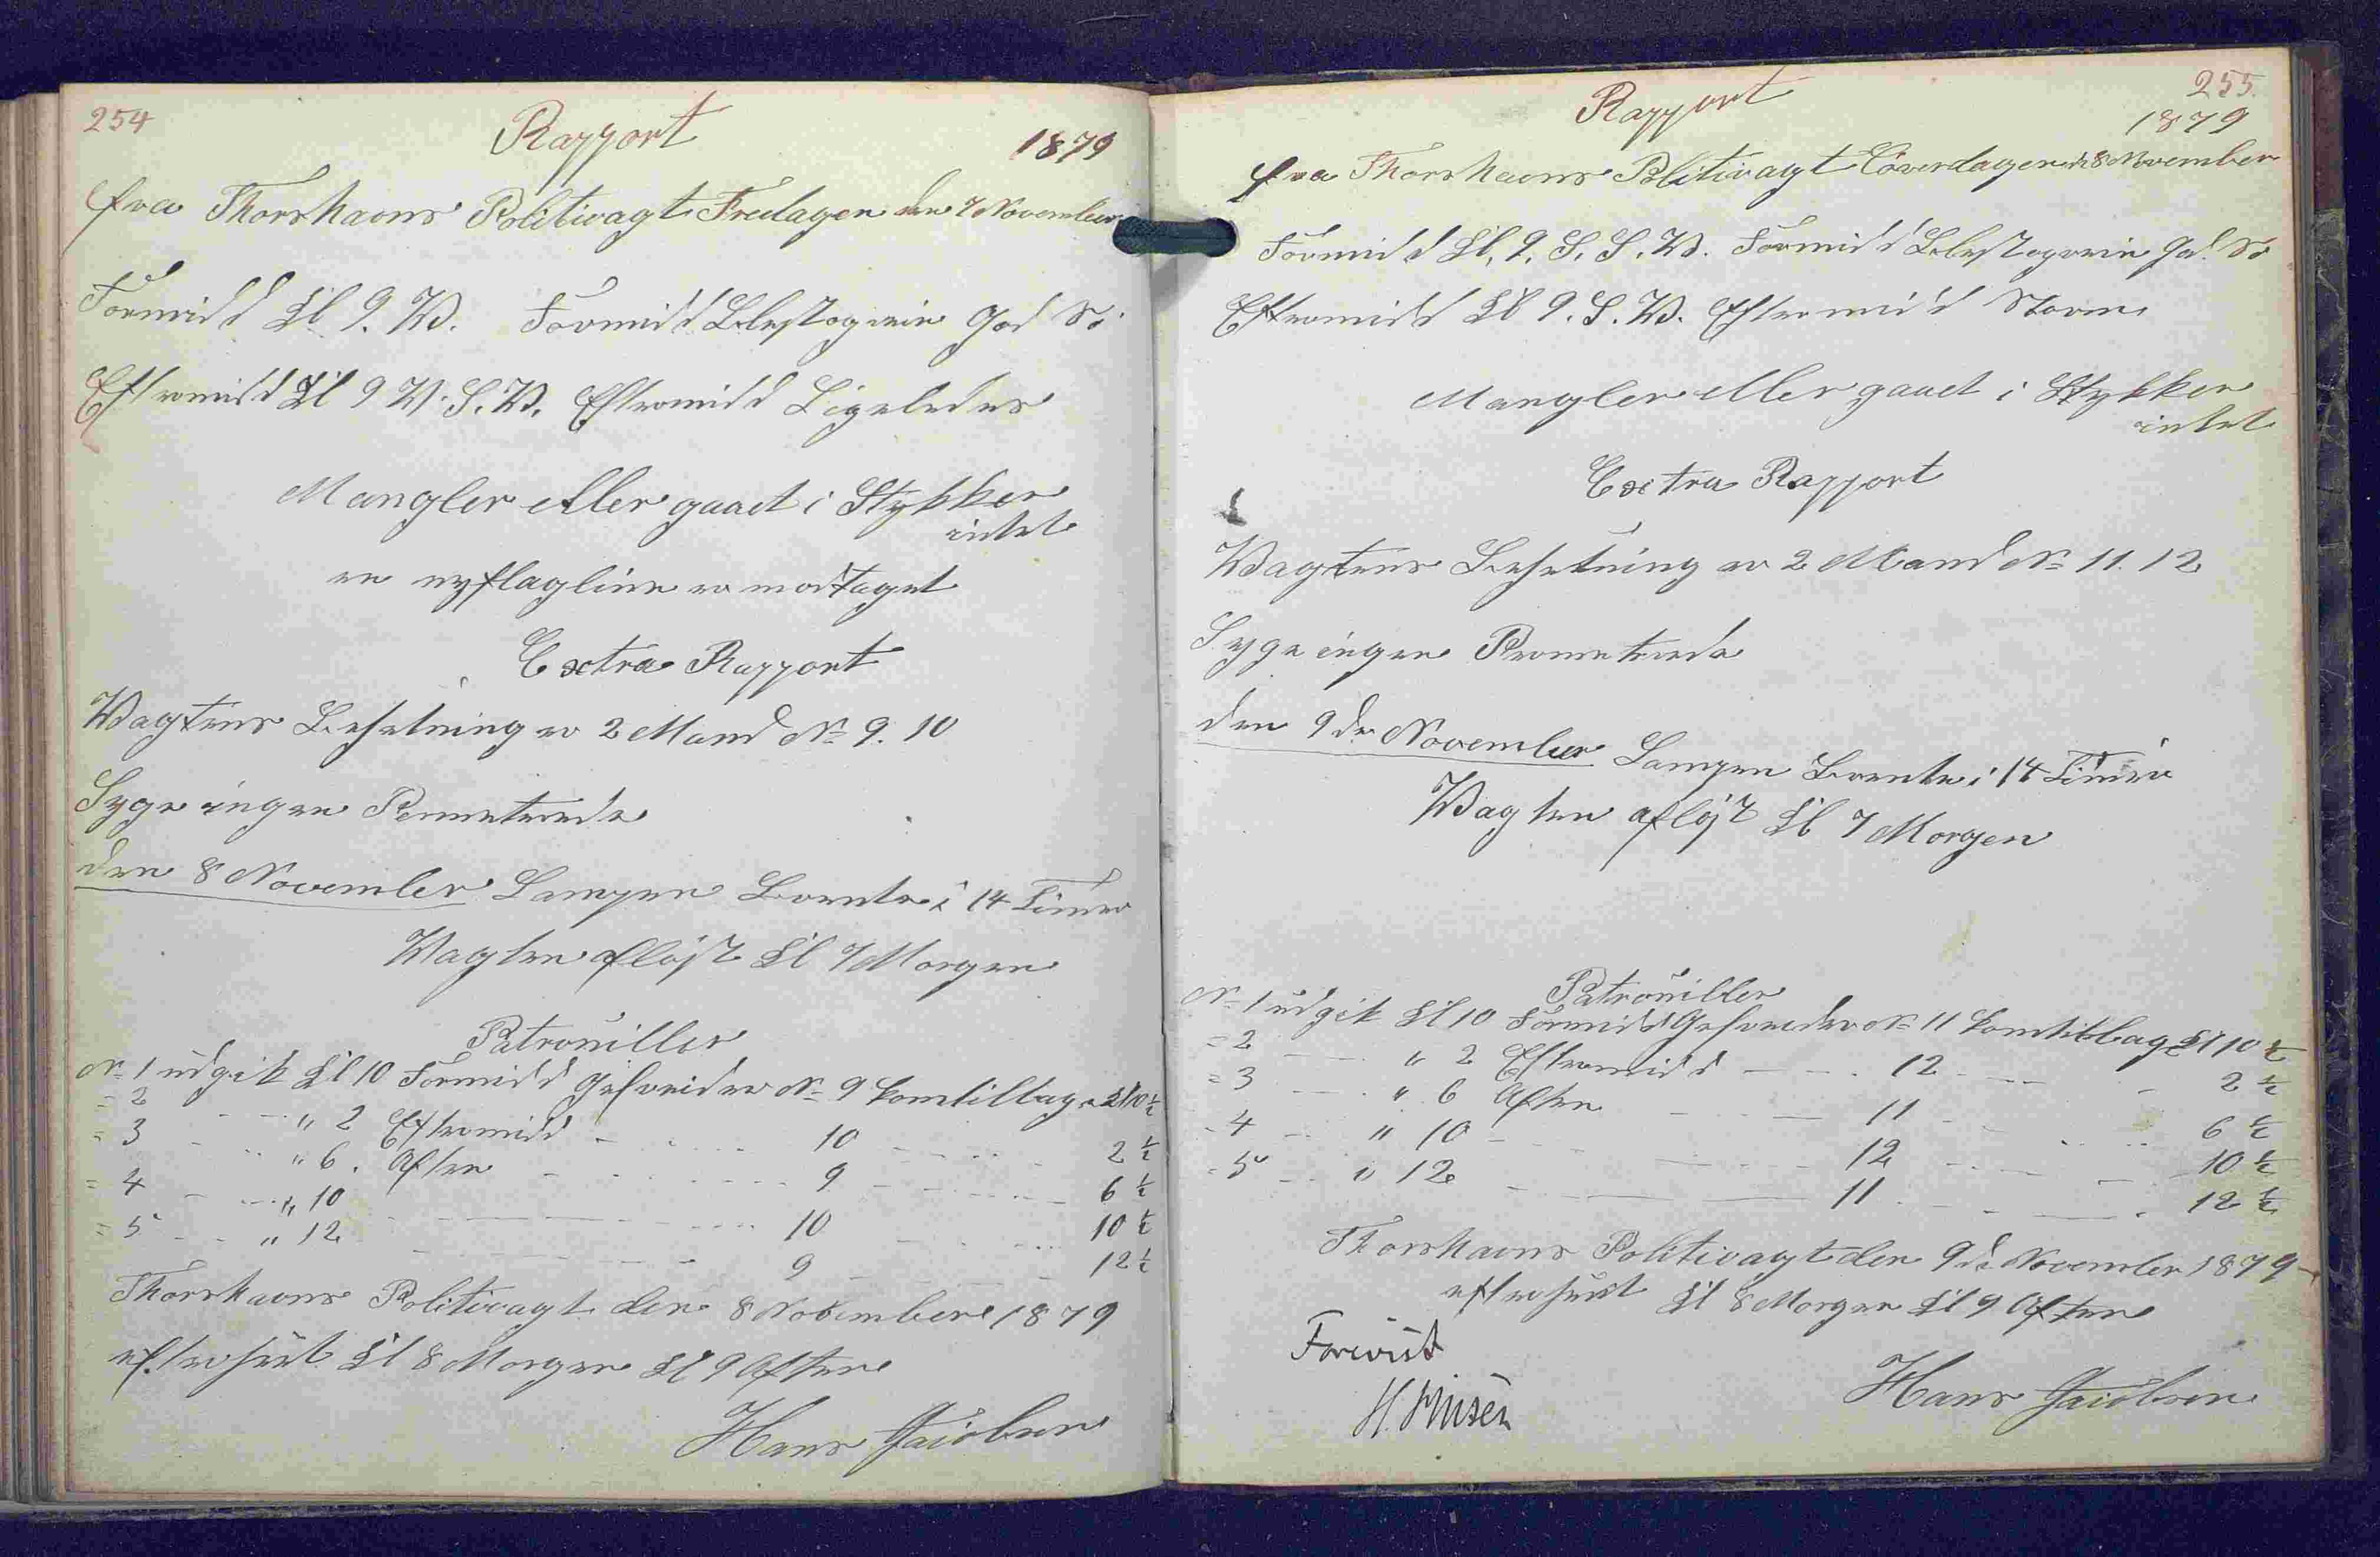 254
Rapport
1879
fra Thorshavns Politivagt Fredagen den 7 November
Formidd Kl 9. W. Formidd Blestog vin God Sö
Eftermidd Kl 9 W. S. W. Eftermidd Ligeledes
Mangler eller gaaet i Stykker
intet
en ny flagline er modtaget
Extra Rapport
Wagtens Besetning er 2 Mand No 9. 10
Syge ingen
den 8 November Lampen Brente i 14 Timer
Wagten afløst Kl 7 Morgen
Patrouiller
No 1 udgik Kl 10 Formidd Gefreider No 9 kom tilbage Kl 10 ½
= 2 " 2 Eftermidd 10 2 ½
= 3 " 6. Aften 9 6 ½
= 4 " 10 10 10 ½
= 5 " 12 9 12 ½
Thorshavns Politivagt den 8 November 1879
efterseet Kl 8 Morgen Kl 9 Aften
Hans Jacobsen
255.
Rapport
1879
fra Thorshavns Politivagt Löverdagen d 8 November
Formidd Kl. 9. S. S. W. Formidd Blestog vin God Sö
Eftermidd Kl 9. S. W. Eftermidd Storm
Mangler eller gaaet i Stykker
intet
Extra Rapport
Wagtens Besetning er 2 Mand No 11. 12
Syge ingen
den 9de November Lampen Brente i 14 Timer
Wagten afløst Kl 7 Morgen
Patrouiller
No 1 udgik Kl 10 Formidd Gefreider No 11 kom tilbage Kl 10 ½
= 2 " 2 Eftermidd 12 2 ½
= 3 " 6 Aften 11 6 ½
= 4 " 10 12 10 ½
= 5 " 12 11 12 ½
Thorshavns Politivagt den 9de November 1879
efterseet Kl 8 Morgen Kl 9 Aften
Forevist
Hans Jacobsen